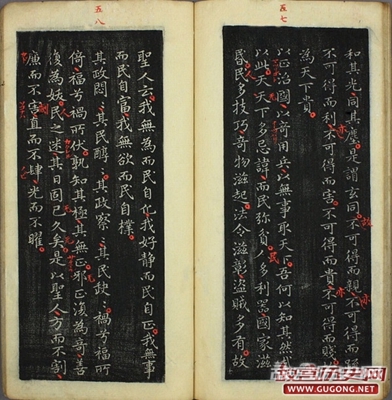 五七
和其光同其塵是謂玄同不可得而親不可得而
不可得而利不可得而害不可得而貴不可得而賤
為天下貴
以正治國以奇用兵以無事取天下吾何以知其然哉
以此天下多忌諱而民弥貧多利器國家滋
昬民多技巧奇物滋起法令滋彰盜賊多有故
五八
聖人云我無為而民自化我好靜而民自正我無事
而民自富我無欲而民自樸
其政悶〻其民醇〻其政察〻其民缺〻禍兮福所
倚福兮禍所伏孰知其極其無正邪正復為奇善
復為妖民之迷其日固已久矣是以聖人方而不割
廉而不害直而不肆光而不曜
故宫历史网
www.gugong.net